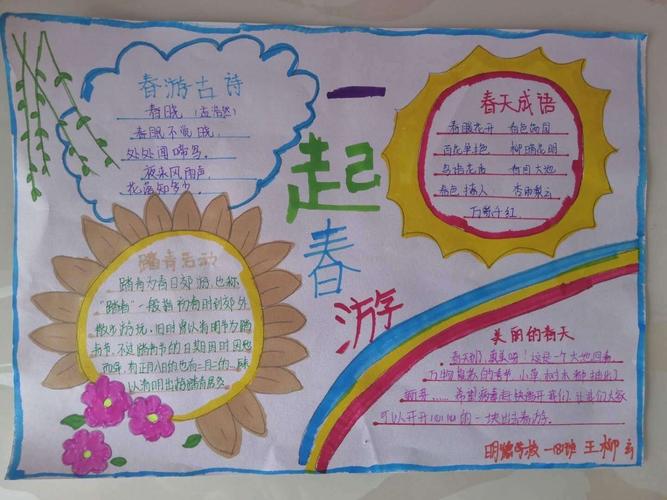 春游古诗
春晓 (孟浩然)
春眠不觉晓,
处处闻啼鸟。
夜来风雨声,
花落知多少。
一起春游
春天成语
春暖花开 春色满园
百花争艳 柳暗花明
鸟语花香 春回大地
春色撩人
万紫千红
踏青活动
踏青为春日郊游,也称
"踏青"一般指初春时到郊外
散步游玩,旧时曾以清明节为踏
青节。不过踏青节的日期因时因地
而异,有正月八日的也有二月二的
以清明出游踏青居多
美丽的春天
春天到,真美呀!这是一个大地回春、
万物复苏的季节,小草 树木都抽出了
新芽
可以开开心心的一块出去春游。
王柳